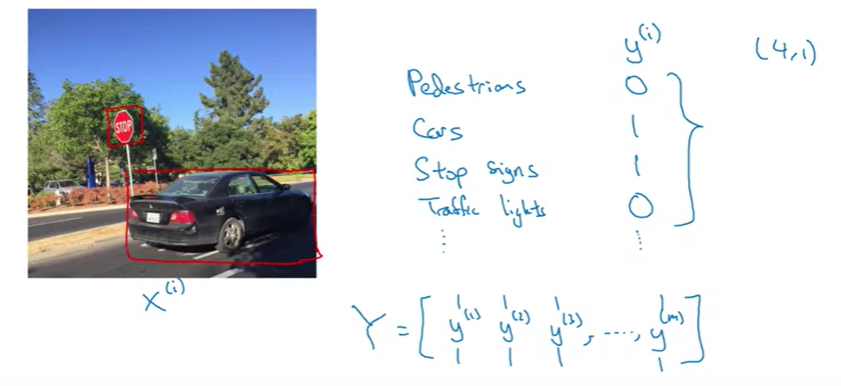 STOP
y^(i) (4,1)
Pedestrians 0
Cars 1
Stop signs 1
Traffic lights 0
⋮ ⋮
x^(i)
Y = [ y^(1) y^(2) y^(3), ...., y^(m) ]